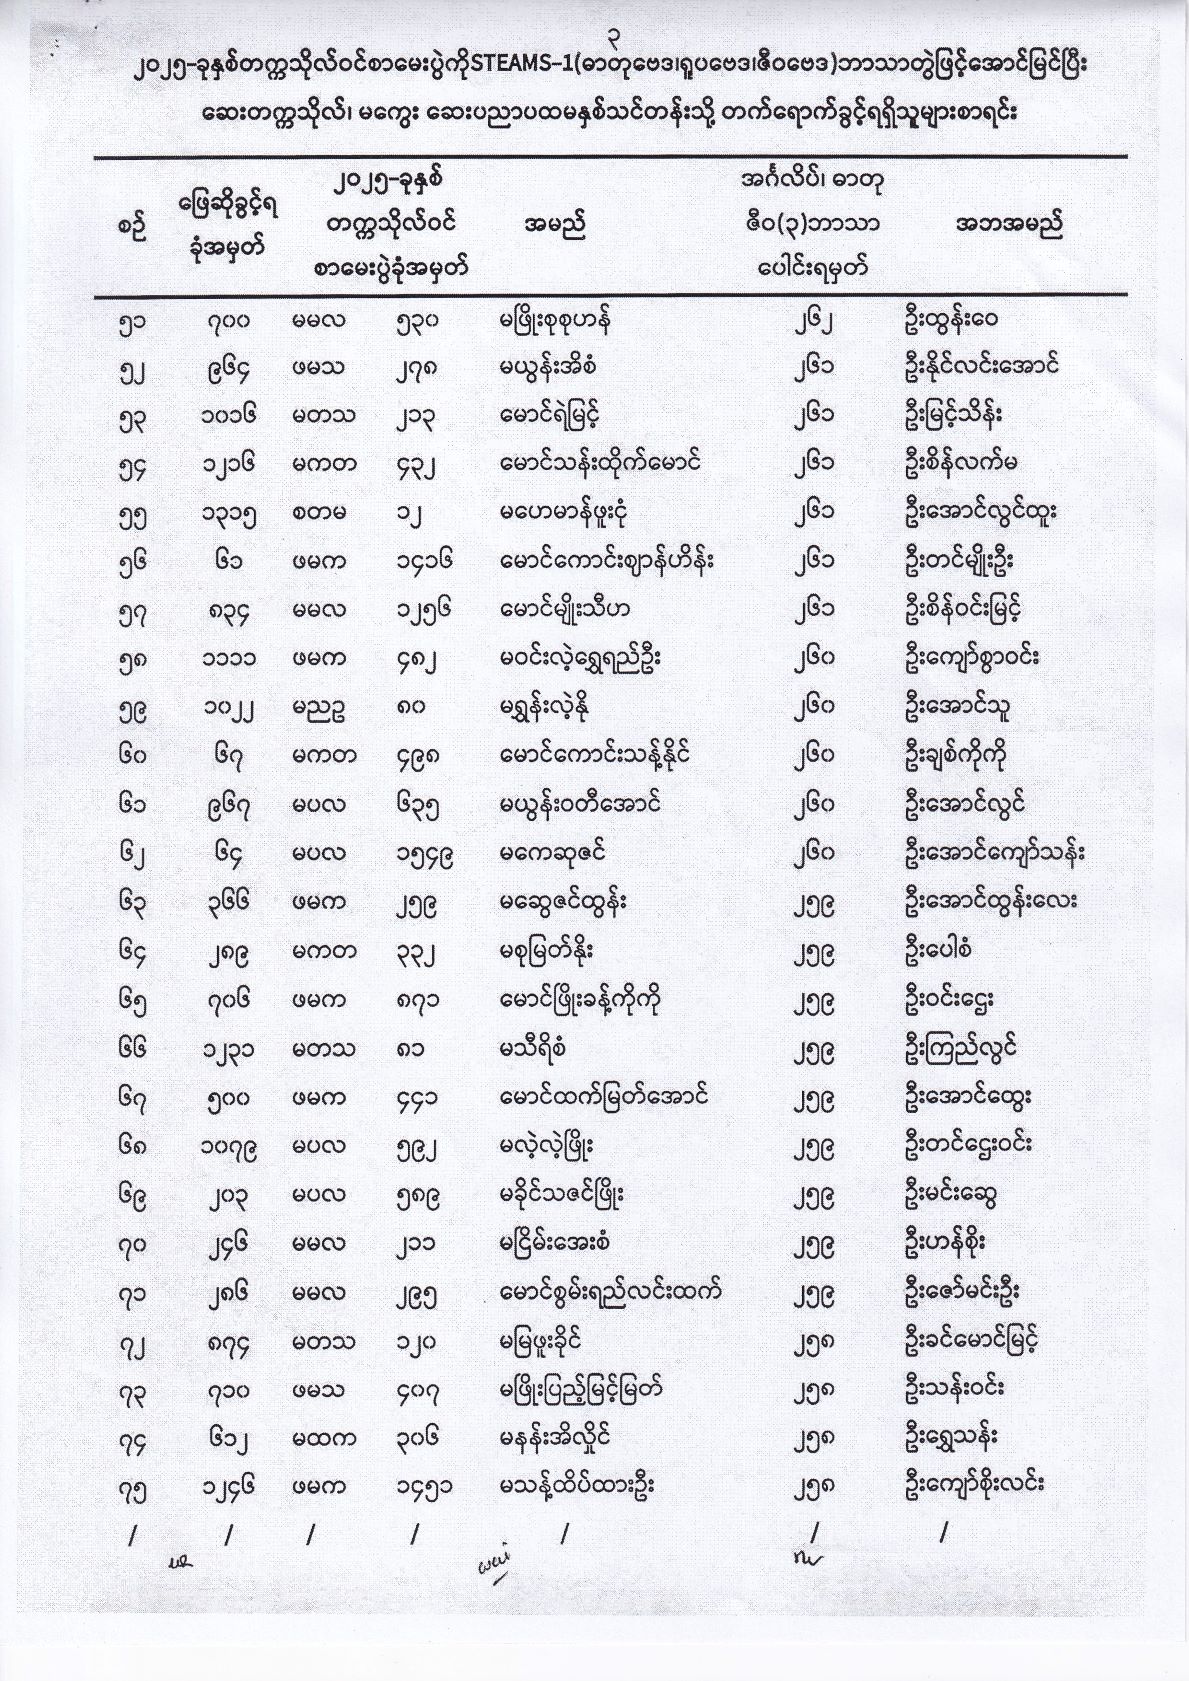 ၃
၂၀၂၅-ခုနှစ်တက္ကသိုလ်ဝင်စာမေးပွဲကိုSTEAMS-1(ဓာတုဗေဒ၊ရူပဗေဒ၊ဇီဝဗေဒ)ဘာသာတွဲဖြင့်အောင်မြင်ပြီး
ဆေးတက္ကသိုလ်၊ မကွေး ဆေးပညာပထမနှစ်သင်တန်းသို့ တက်ရောက်ခွင့်ရရှိသူများစာရင်း
စဉ် ဖြေဆိုခွင့်ရ ခုံအမှတ် ၂၀၂၅-ခုနှစ် တက္ကသိုလ်ဝင် စာမေးပွဲခုံအမှတ် အမည် အင်္ဂလိပ်၊ ဓာတု ဇီဝ(၃)ဘာသာ ပေါင်းရမှတ် အဘအမည်
၅၁ ၇၀၀ မမလ ၅၃၀ မဖြိုးစုစုဟန် ၂၆၂ ဦးထွန်းဝေ
၅၂ ၉၆၄ ဖမသ ၂၇၈ မယွန်းအိစံ ၂၆၁ ဦးနိုင်လင်းအောင်
၅၃ ၁၀၁၆ မတသ ၂၁၃ မောင်ရဲမြင့် ၂၆၁ ဦးမြင့်သိန်း
၅၄ ၁၂၁၆ မကတ ၄၃၂ မောင်သန်းထိုက်မောင် ၂၆၁ ဦးစိန်လက်မ
၅၅ ၁၃၁၅ စတမ ၁၂ မဟေမာန်ဖူးငုံ ၂၆၁ ဦးအောင်လွင်ထူး
၅၆ ၆၁ ဖမက ၁၄၁၆ မောင်ကောင်းဈာန်ဟိန်း ၂၆၁ ဦးတင်မျိုးဦး
၅၇ ၈၃၄ မမလ ၁၂၅၆ မောင်မျိုးသီဟ ၂၆၁ ဦးစိန်ဝင်းမြင့်
၅၈ ၁၁၁၁ ဖမက ၄၈၂ မဝင်းလဲ့ရွှေရည်ဦး ၂၆၀ ဦးကျော်စွာဝင်း
၅၉ ၁၀၂၂ မညဥ ၈၀ မရွှန်းလဲ့နို ၂၆၀ ဦးအောင်သူ
၆၀ ၆၇ မကတ ၄၉၈ မောင်ကောင်းသန့်နိုင် ၂၆၀ ဦးချစ်ကိုကို
၆၁ ၉၆၇ မပလ ၆၃၅ မယွန်းဝတီအောင် ၂၆၀ ဦးအောင်လွင်
၆၂ ၆၄ မပလ ၁၅၄၉ မကေဆုဇင် ၂၆၀ ဦးအောင်ကျော်သန်း
၆၃ ၃၆၆ ဖမက ၂၅၉ မဆွေဇင်ထွန်း ၂၅၉ ဦးအောင်ထွန်းလေး
၆၄ ၂၈၉ မကတ ၃၃၂ မစုမြတ်နိုး ၂၅၉ ဦးပေါစံ
၆၅ ၇၀၆ ဖမက ၈၇၁ မောင်ဖြိုးခန့်ကိုကို ၂၅၉ ဦးဝင်းဌေး
၆၆ ၁၂၃၁ မတသ ၈၁ မသီရိစံ ၂၅၉ ဦးကြည်လွင်
၆၇ ၅၀၀ ဖမက ၄၄၁ မောင်ထက်မြတ်အောင် ၂၅၉ ဦးအောင်ထွေး
၆၈ ၁၀၇၉ မပလ ၅၉၂ မလဲ့လဲ့ဖြိုး ၂၅၉ ဦးတင်ဌေးဝင်း
၆၉ ၂၀၃ မပလ ၅၈၉ မခိုင်သဇင်ဖြိုး ၂၅၉ ဦးမင်းဆွေ
၇၀ ၂၄၆ မမလ ၂၁၁ မငြိမ်းအေးစံ ၂၅၉ ဦးဟန်စိုး
၇၁ ၂၈၆ မမလ ၂၉၅ မောင်စွမ်းရည်လင်းထက် ၂၅၉ ဦးဇော်မင်းဦး
၇၂ ၈၇၄ မတသ ၁၂၀ မမြဖူးခိုင် ၂၅၈ ဦးခင်မောင်မြင့်
၇၃ ၇၁၀ ဖမသ ၄၀၇ မဖြိုးပြည့်မြင့်မြတ် ၂၅၈ ဦးသန်းဝင်း
၇၄ ၆၁၂ မထက ၃၀၆ မနန်းအိလှိုင် ၂၅၈ ဦးရွှေသန်း
၇၅ ၁၂၄၆ ဖမက ၁၄၅၁ မသန့်ထိပ်ထားဦး ၂၅၈ ဦးကျော်စိုးလင်း
/ / / / / / /